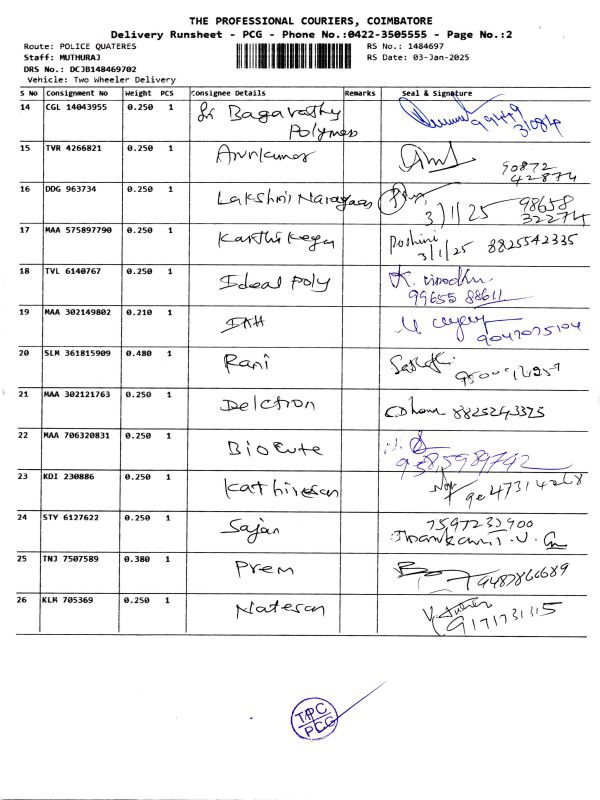 THE PROFESSIONAL COURIERS, COIMBATORE
Delivery Runsheet - PCG - Phone No.:0422-3505555 - Page No.:2
Route: POLICE QUATERES
RS No.: 1484697
Staff: MUTHURAJ
RS Date: 03-Jan-2025
DRS No.: DCJB148469702
Vehicle: Two Wheeler Delivery
S No Consignment No Weight PCS Consignee Details Remarks Seal & Signature
14 CGL 14043955 0.250 1 Sri Bagavathy
Polymers
15 TVR 4266821 0.250 1 Arunkumar
90872
42874
16 DDG 963734 0.250 1 Lakshmi Narayanan
3/1/25 98658
32274
17 MAA 575897790 0.250 1 Karthikeyan Roshini
3/1/25 8825542335
18 TVL 6140767 0.250 1 Ideal Poly K. Vinodhu
99655 88611
19 MAA 302149802 0.210 1
9047075104
20 SLM 361815909 0.480 1 Rani
21 MAA 302121763 0.250 1 Delctron 8825243375
22 MAA 706320831 0.250 1 Biocute
23 KDI 230886 0.250 1 Kathiresan
24 STY 6127622 0.250 1 Sajan
7597233900
Thankamit.V.
25 TNJ 7507589 0.380 1 Prem
9487866689
26 KLM 705369 0.250 1 Natesan
9171731315
TPC
PCG